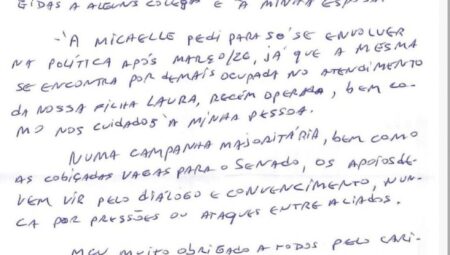 GIDAS A ALGUNS COLEGAS E À MINHA ESPOSA.
-'À MICAELLE PEDI PARA SÓ SE ENVOLVER
NA POLÍTICA APÓS MARÇO/26, JÁ QUE A MESMA
SE ENCONTRA POR DEMAIS OCUPADA NO ATENDIMENTO
DA NOSSA FILHA LAURA, RECÉM OPERADA, BEM CO-
MO NOS CUIDADOS À MINHA PESSOA.
NUMA CAMPANHA MAJORITÁRIA, BEM COMO
AS COBIÇADAS VAGAS PARA O SENADO, OS APOIOS DE-
VEM VIR PELO DIÁLOGO E CONVENCIMENTO, NUN-
CA POR PRESSÕES OU ATAQUES ENTRE ALIADOS.
MEU MUITO OBRIGADO A TODOS PELO CARI-